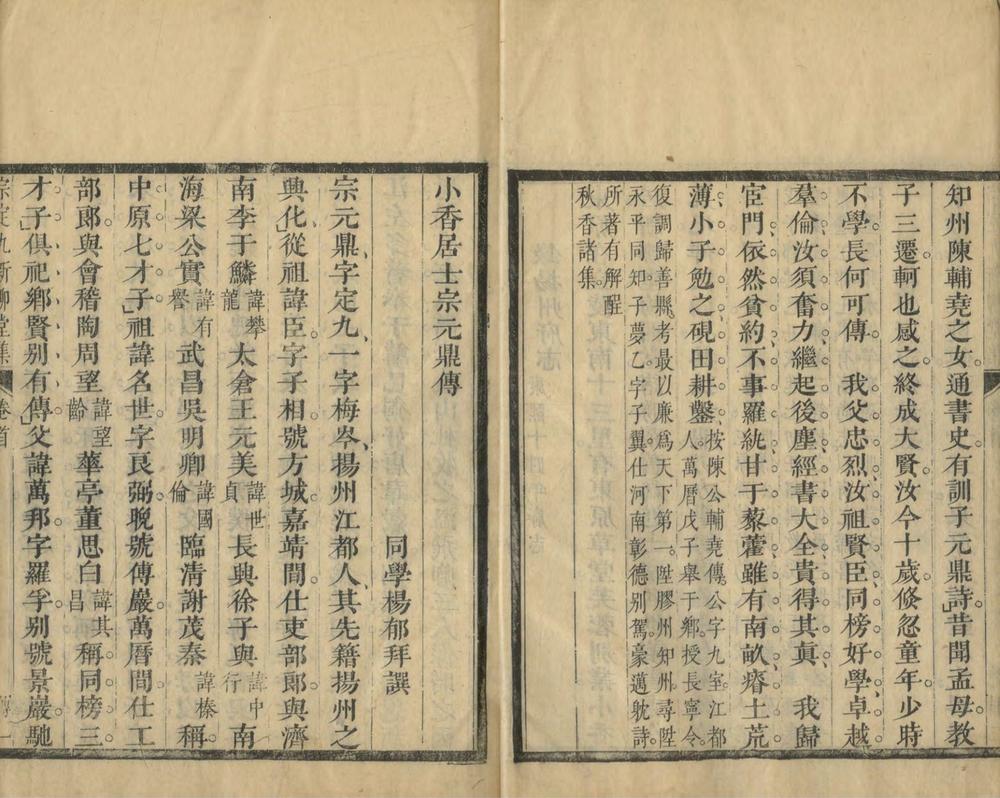 知州陳輔堯之女通書史有訓子元鼎詩昔聞孟母教
子三遷軻也感之終成大賢汝今十歲倏忽童年少時
不學長何可傳　我父忠烈汝祖賢臣同榜好學卓越
羣倫汝須奮力繼起後塵經書大全貴得其眞　我歸
宦門依然貧約不事羅紈甘于藜藿雖有南畝瘠土荒
薄小子勉之硯田耕鑿按陳公輔堯傳公字九室江都
人萬曆戊子舉于鄉授長寧令
復調歸善縣考最以廉爲天下第一陞膠州知州尋陞
永平同知子夢乙字子翼仕河南彰德別駕豪邁躭詩
所著有解酲
秋香諸集
小香居士宗元鼎傳
同學楊郁拜譔
宗元鼎字定九一字梅岑揚州江都人其先籍揚州之
興化從祖諱臣字子相號方城嘉靖間仕吏部郎與濟
南李于鱗諱攀龍太倉王元美諱世貞長興徐子與諱中行南
海梁公實諱有譽武昌吳明卿諱國倫臨淸謝茂秦諱榛稱
中原七才子祖諱名世字良弼晚號傅巖萬曆間仕工
部郎與會稽陶周望諱望齡華亭董思白諱其昌稱同榜三
才子俱祀鄉賢別有傳父諱萬邦字羅孚別號景巖馳
宗定九新柳堂集
卷首
傳
一